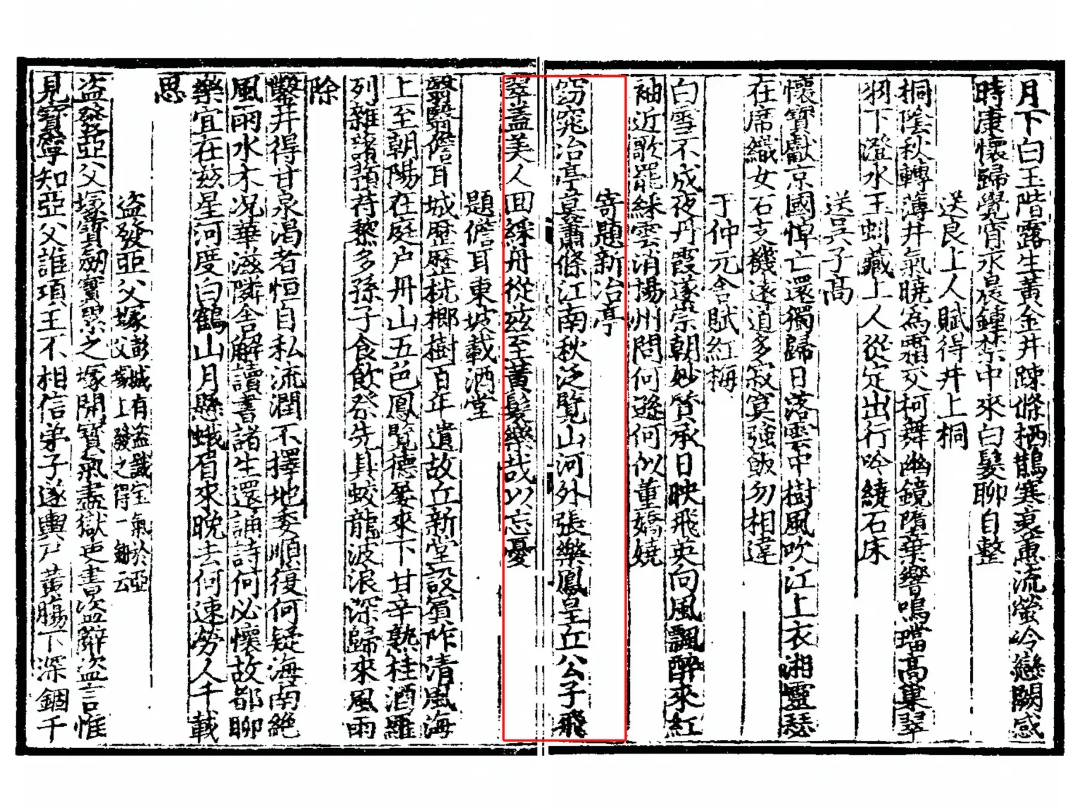 月下白玉階露生黃金井踈條栖鵲寒裛裛流螢冷戀闕感
時康懷歸覺宵永晨鍾禁中來白髮聊自整
送良上人賦得井上桐
桐陰秋轉薄井氣曉為霜交柯舞幽鏡隋葉響鳴璫高巢翠
羽下澄水玉虯藏上人從定出行吟繞石床
送吳子高
懷寶獻京國悼亡還獨歸日落雲中樹風吹江上衣湘靈瑟
在席織女石支機遠道多寂寞強飯勿相違
于仲元舍賦紅梅
白雪不成夜丹霞遂崇朝妙質承日映飛英向風飄醉來紅
袖近歌罷綵雲消揚州問何遜何似董嬌嬈
寄題新治亭
窈窕治亭墓蕭條江南秋泛覽山河外張樂鳳皇丘公子飛
翠蓋美人回綵舟從茲至黃髮樂哉以忘憂
題儋耳東坡載酒堂
翳翳儋耳城歷歷桄榔樹百年遺故丘新堂設奠阼清風海
上至朝陽在庭戶丹山五色鳳覽德晏來下甘辛熟桂酒羅
列雜藷預苻黎多孫子食飲祭先具蛟龍波浪深歸來風雨
除
鑿井得甘泉渴者恒自私流潤不擇地委順復何疑海南絶
風雨水木况華滋隣舍解讀書諸生還誦詩何必懷故都聊
樂宜在茲星河度白鶴山月縣蛾眉來晚去何速勞人千載
思
盜發亞父塚彭城有盜識宝氣於亞父塚上發之得一劍云
盜發亞父塚寶劍實累之塚開寶氣盡獄吏書盜辭盜言惟
見寶寧知亞父誰項王不相信弟子遂輿尸黃膓下深錮千